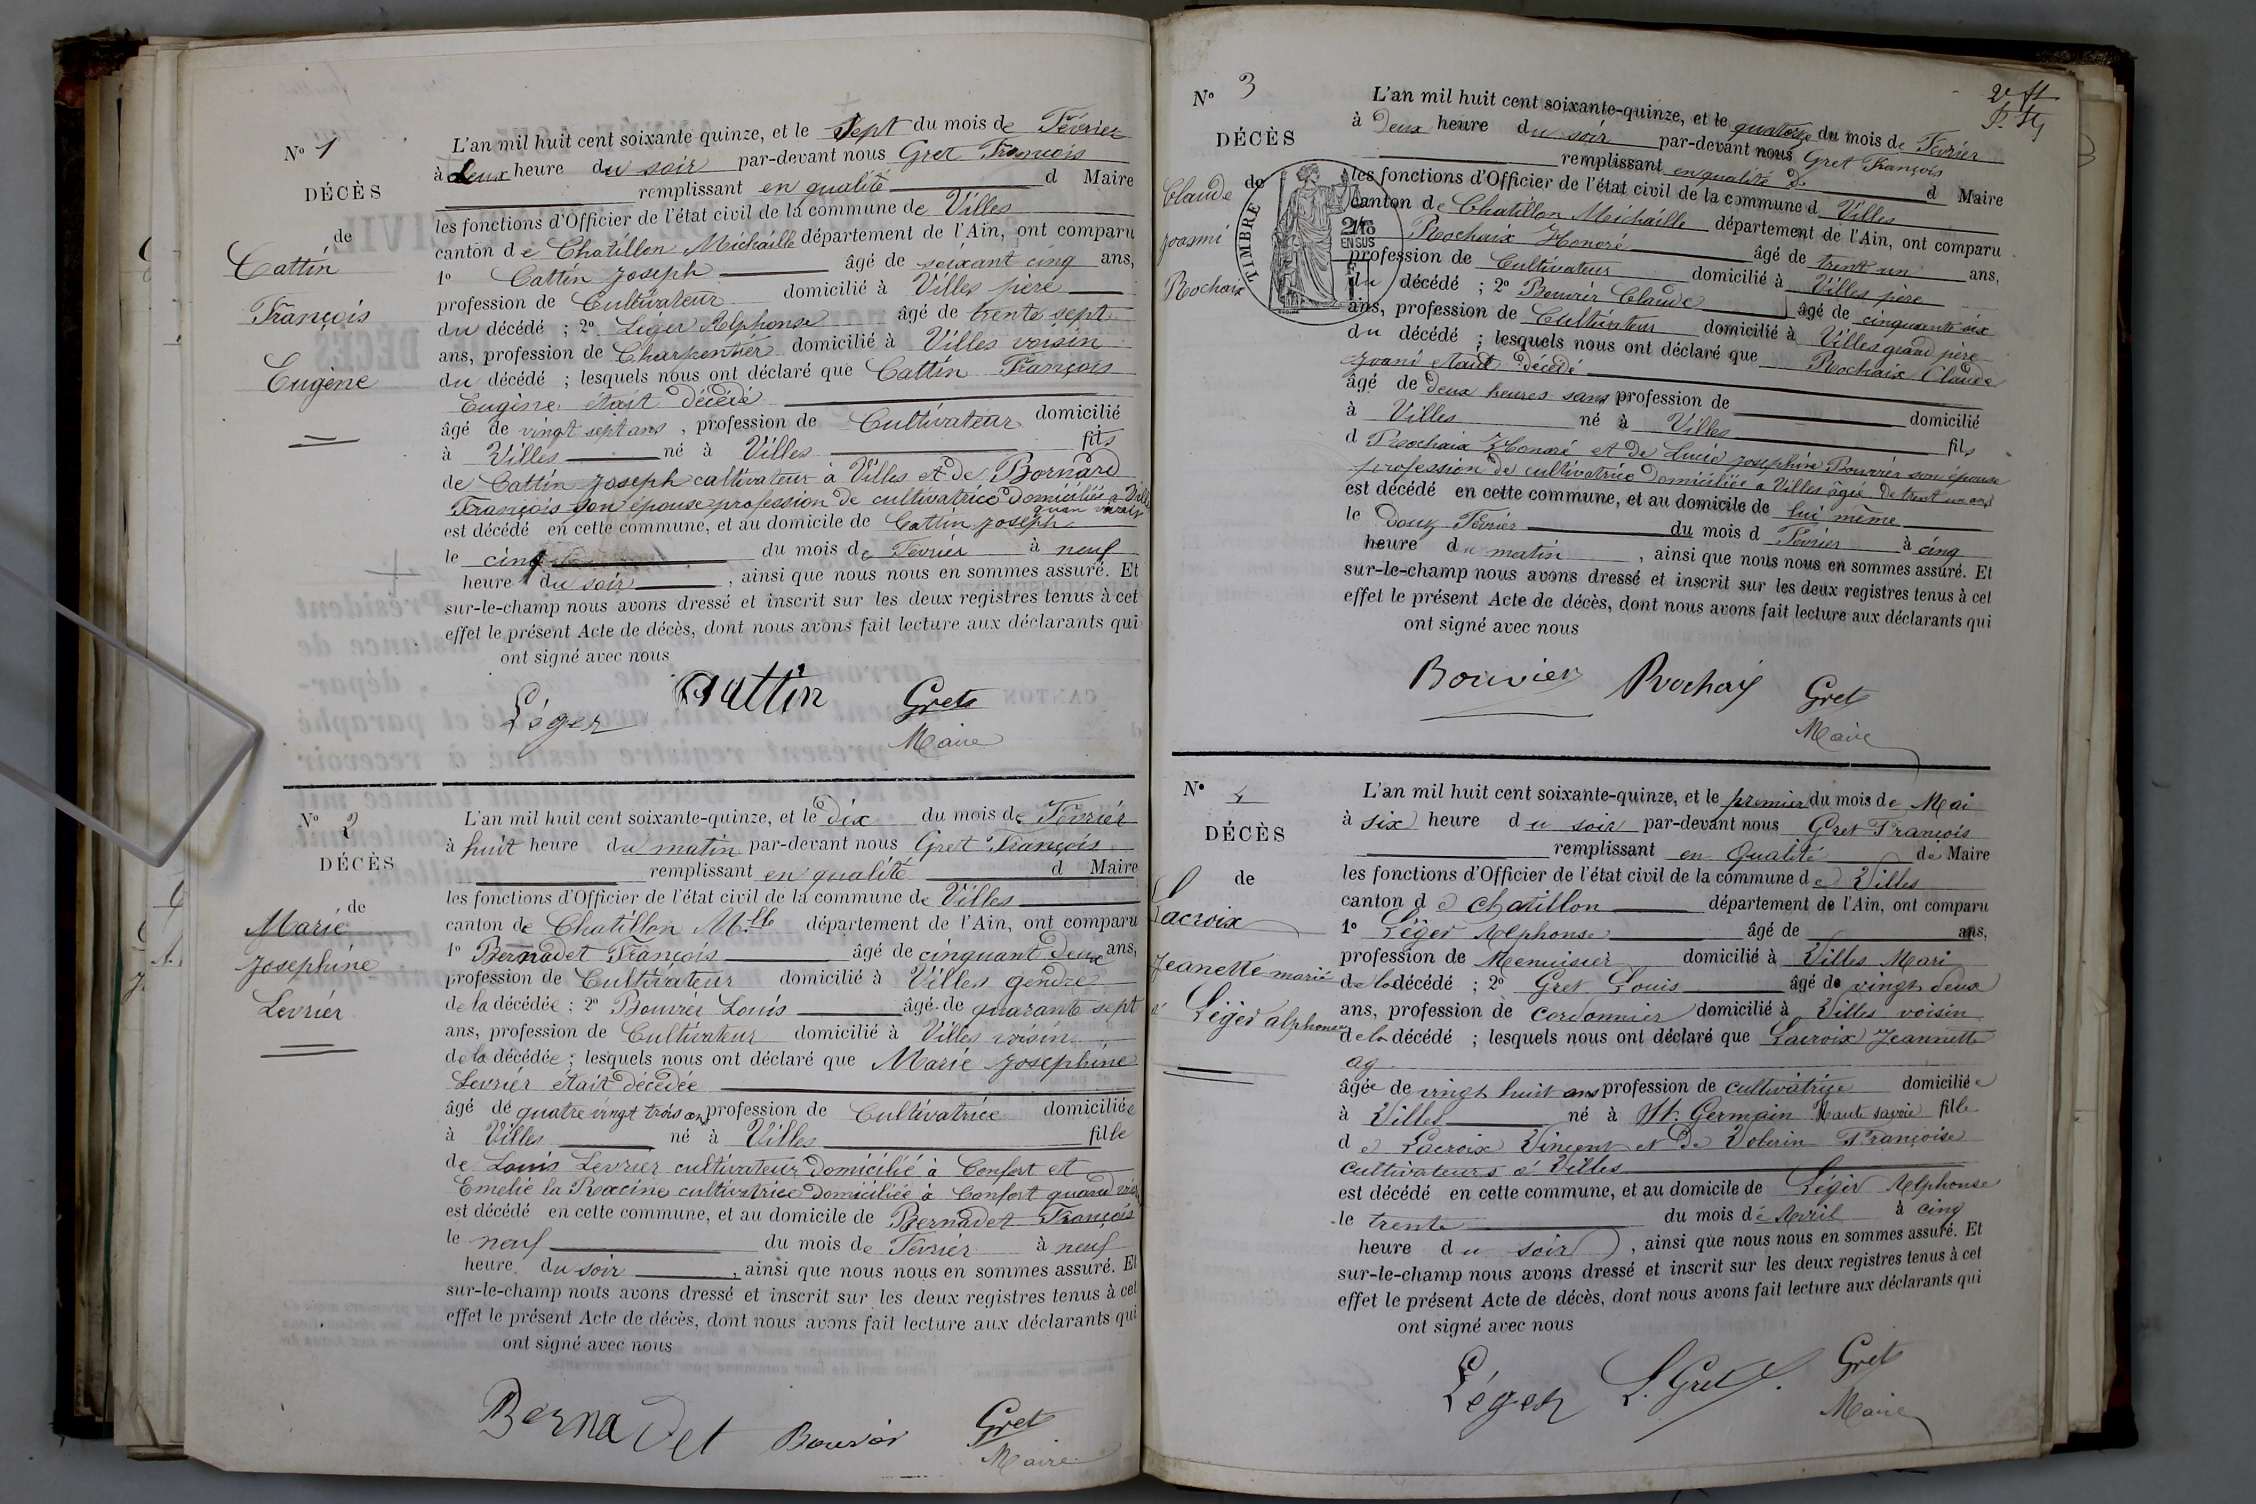 N° 1
DÉCÈS
de
Cattin
François
Eugène
L'an mil huit cent soixante-quinze, et le Sept du mois de Février
à deux heure du soir par-devant nous Gret François
remplissant en qualité d Maire
les fonctions d'Officier de l'état civil de la commune de Villes
canton de Chatillon Michaille département de l'Ain, ont comparu
1° Cattin Joseph âgé de soixant cinq ans,
profession de Cultivateur domicilié à Villes père
du décédé ; 2° Léger Alphonse âgé de trente sept
ans, profession de Charpentier domicilié à Villes voisin
du décédé ; lesquels nous ont déclaré que Cattin François
Eugène était décédé
âgé de vingt sept ans, profession de Cultivateur domicilié
à Villes né à Villes fils
de Cattin Joseph cultivateur à Villes et de Bornard
François son épouse profession de cultivatrice domiciliés a Villes
quan vivait
est décédé en cette commune, et au domicile de Cattin Joseph
le cinq du mois de Février à neuf
heure du soir, ainsi que nous nous en sommes assuré. Et
sur-le-champ nous avons dressé et inscrit sur les deux registres tenus à cet
effet le présent Acte de décès, dont nous avons fait lecture aux déclarants qui
ont signé avec nous
Léger Cattin Gret
Maire
N° 2
DÉCÈS
de
Marie
Josephine
Levrier
L'an mil huit cent soixante-quinze, et le dix du mois de Février
à huit heure du matin par-devant nous Gret François
remplissant en qualité d Maire
les fonctions d'Officier de l'état civil de la commune de Villes
canton de Chatillon M.lle département de l'Ain, ont comparu
1° Bernadet François âgé de cinquant deux ans,
profession de Cultivateur domicilié à Villes gendre
de la décédée ; 2° Bouvier Louis âgé de quarante sept
ans, profession de Cultivateur domicilié à Villes voisin
de la décédée ; lesquels nous ont déclaré que Marie Josephine
Levrier était décédée
âgé de quatre vingt trois an profession de Cultivatrice domiciliée
à Villes né à Villes fille
de Louis Levrier cultivateur domicilié à Confort et
Emelie la Racine cultivatrice domiciliée à Confort quand
est décédé en cette commune, et au domicile de Bernadet François
le neuf du mois de Février à neuf
heure du soir, ainsi que nous nous en sommes assuré. Et
sur-le-champ nous avons dressé et inscrit sur les deux registres tenus à cet
effet le présent Acte de décès, dont nous avons fait lecture aux déclarants qui
ont signé avec nous
Bernadet Bouvier Gret
Maire
2e ft
N° 3
DÉCÈS
de
Claude
Joanni
Rochaix
TIMBRE
2/10
EN SUS
L'an mil huit cent soixante-quinze, et le quatorze du mois de Février
à deux heure du soir par-devant nous Gret François
remplissant en qualité de d Maire
les fonctions d'Officier de l'état civil de la commune d Villes
canton de Chatillon Michaille département de l'Ain, ont comparu
Rochaix Honoré âgé de trent un ans,
profession de Cultivateur domicilié à Villes père
du décédé ; 2° Bouvier Claude âgé de cinquante six
ans, profession de Cultivateur domicilié à Villes grand père
du décédé ; lesquels nous ont déclaré que Rochaix Claude
Joani était décédé
âgé de deux heures sans profession de domicilié
à Villes né à Villes fils
d Rochaix Honoré et de Lucie Josephine Bouvier son épouse
profession de cultivatrice domiciliée a Villes âgée de trent un ans
est décédé en cette commune, et au domicile de lui même
le douz Février du mois d Février à cinq
heure du matin, ainsi que nous nous en sommes assuré. Et
sur-le-champ nous avons dressé et inscrit sur les deux registres tenus à cet
effet le présent Acte de décès, dont nous avons fait lecture aux déclarants qui
ont signé avec nous
Bouvier Rochaix Gret
Maire
N° 4
DÉCÈS
de
Lacroix
Jeanette marié
à Léger alphonse
L'an mil huit cent soixante-quinze, et le premier du mois de Mai
à six heure du soir par-devant nous Gret François
remplissant en Qualité de Maire
les fonctions d'Officier de l'état civil de la commune de Villes
canton de Chatillon département de l'Ain, ont comparu
1° Léger Alphonse âgé de ans,
profession de Menuisier domicilié à Villes Mari
de la décédé ; 2° Gret Louis âgé de vingt deux
ans, profession de cordonnier domicilié à Villes voisin
de la décédé ; lesquels nous ont déclaré que Lacroix Jeannette
ag
âgée de vingt huit ans profession de cultivatrice domiciliée
à Villes né à St Germain Haute savoie fille
de Lacroix Vincent et De Volerin Françoise
cultivateurs à Villes
est décédé en cette commune, et au domicile de Léger Alphonse
le trente du mois de Avril à cinq
heure du soir, ainsi que nous nous en sommes assuré. Et
sur-le-champ nous avons dressé et inscrit sur les deux registres tenus à cet
effet le présent Acte de décès, dont nous avons fait lecture aux déclarants qui
ont signé avec nous
Léger L. Gret Gret
Maire